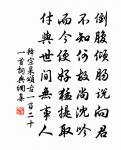 倒腹傾腸說向君
不知何故尚沈吟
而今便好猛提取
付與世間無事人
釋宗杲頌古一百二十
一首詞典網集